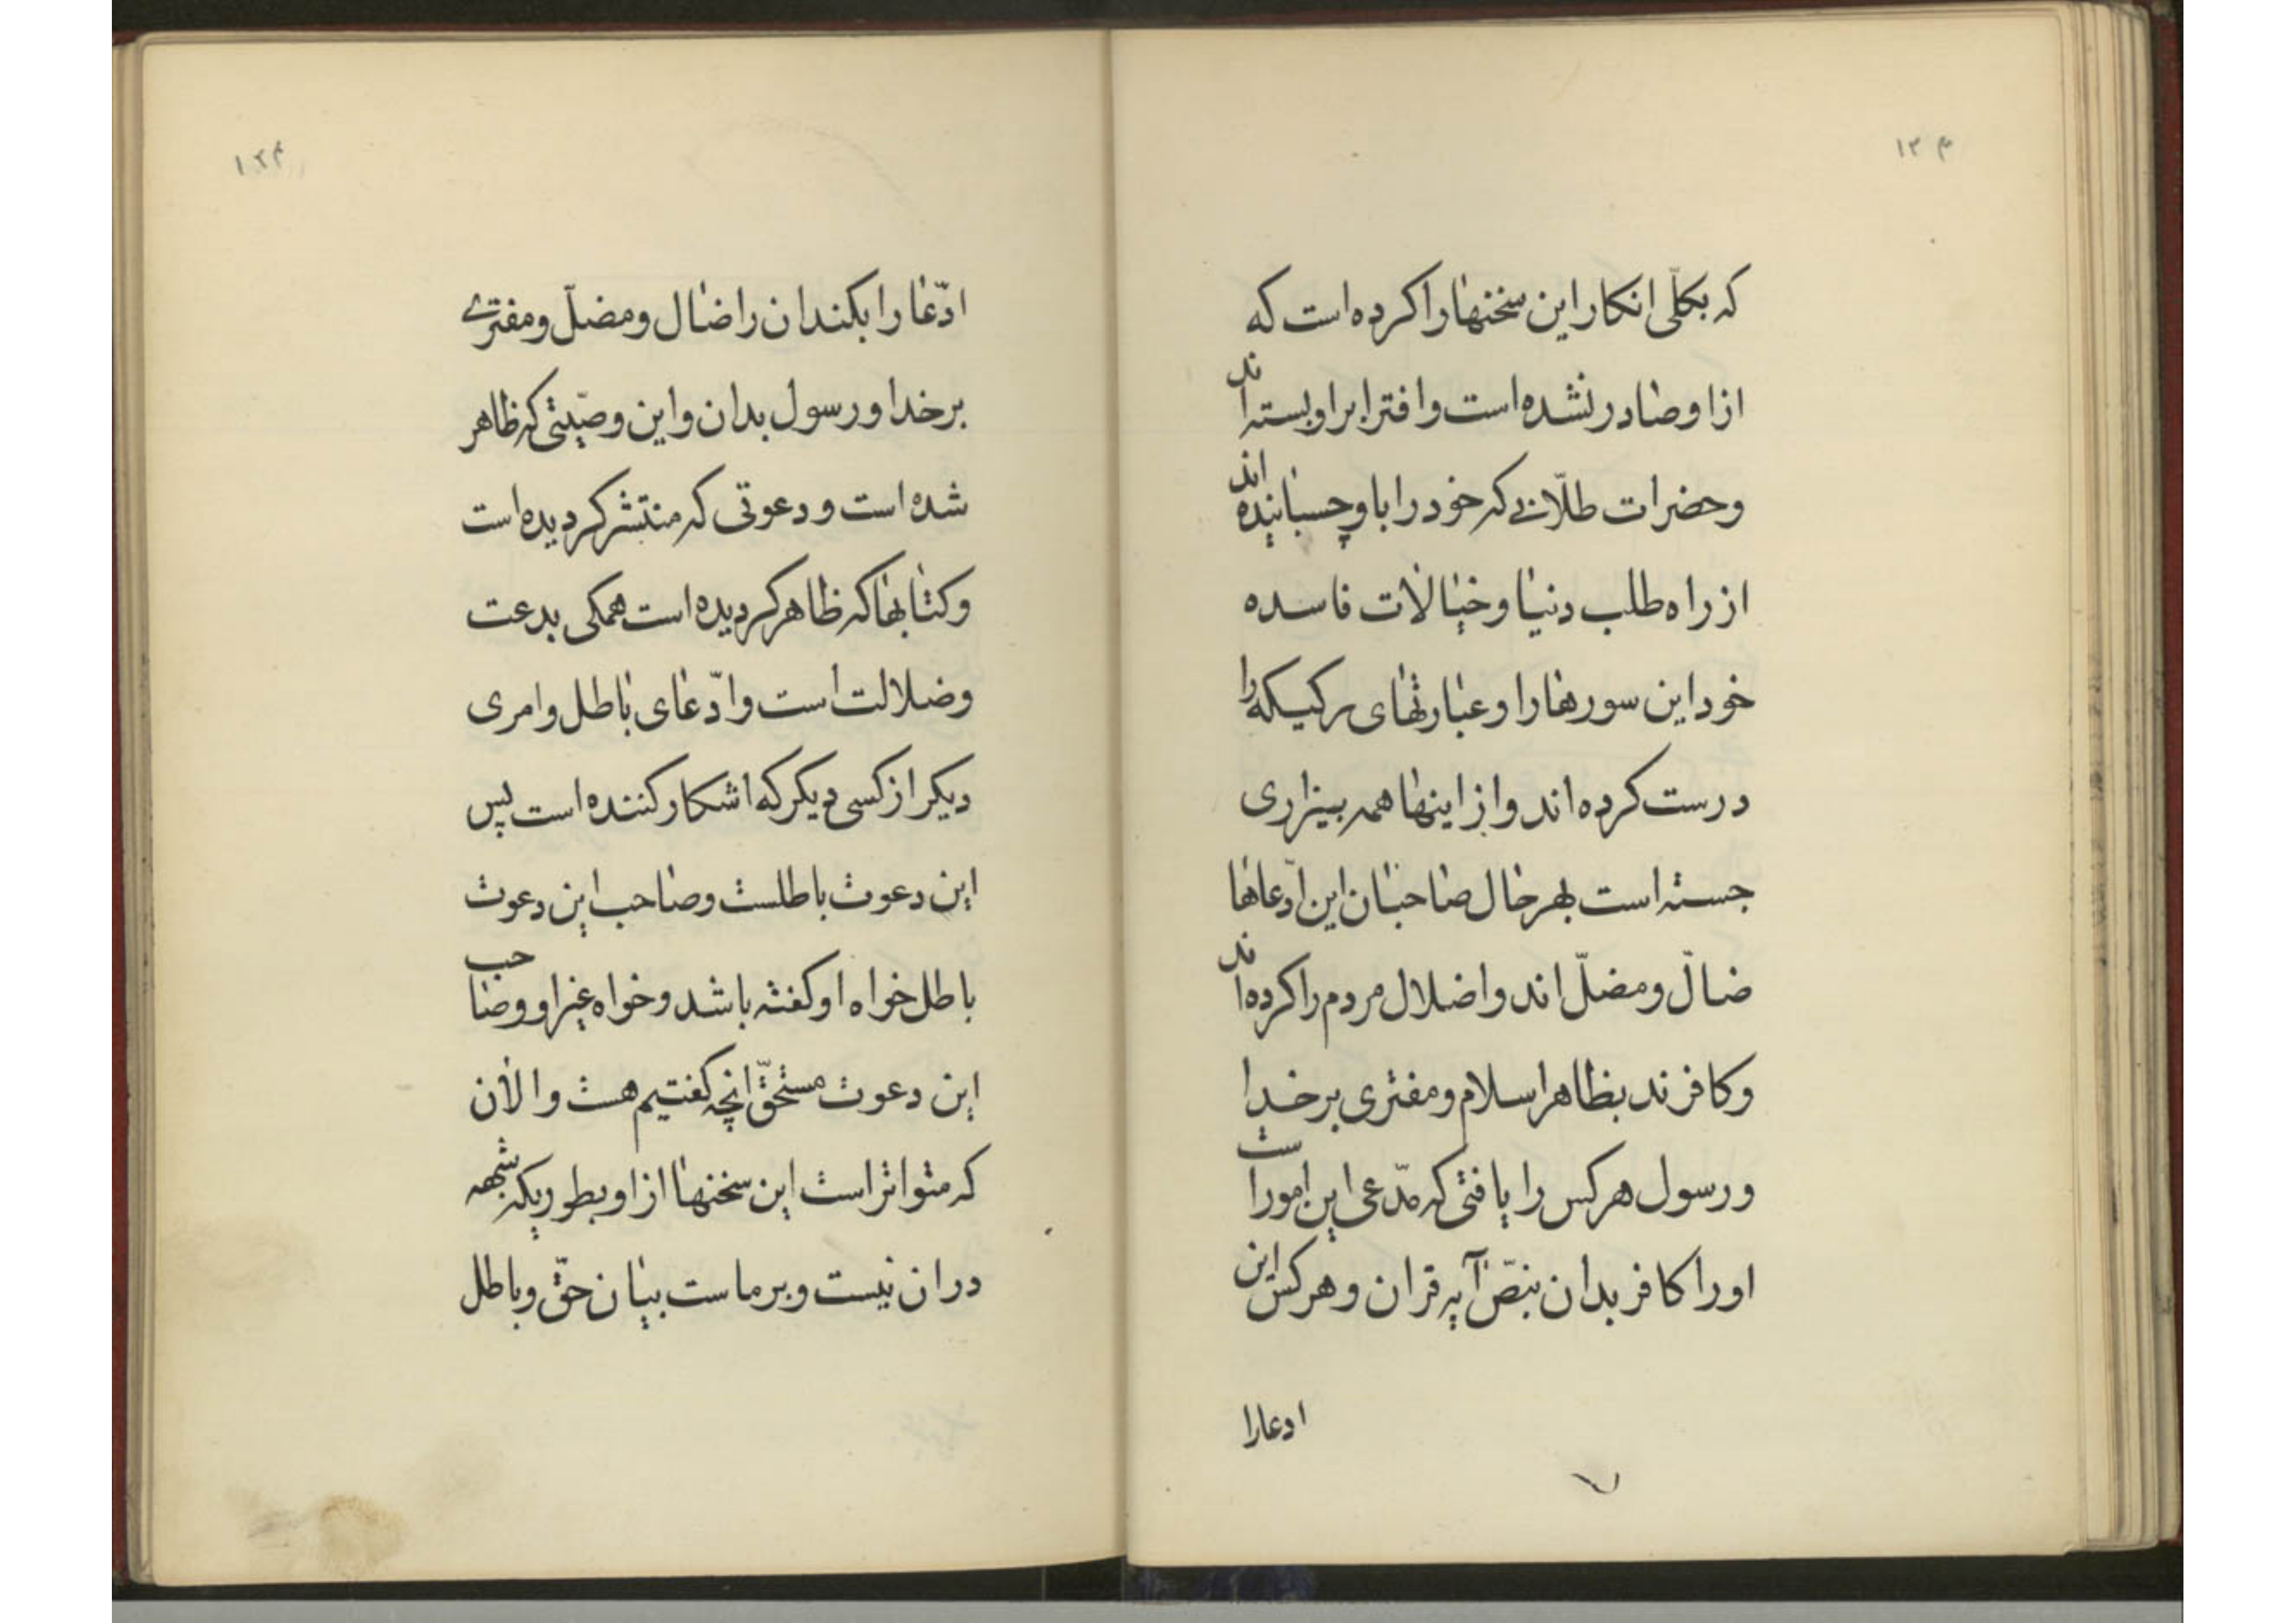 ۱۲۳
که بکلّی انکار این سخنها را کرده است که
از او صادر نشده است و افترا براو بسته اند
و حضرات طلّابی که خود را باو چسبانیده اند
از راه طلب دنیا و خیالات فاسده
خود این سورها را و عبارتهای رکیکه را
درست کرده اند و از اینها همه بیزاری
جسته است بهر حال صاحبان این ادّعاها
ضالّ و مضلّ اند و اضلال مردم را کرده اند
و کافرند بظاهر اسلام و مفتری بر خدا
و رسول هر کس را یافتی که مدّعی این امور است
او را کافر بدان بنصّ آیه قران و هر کس این
ادعا را
۱۲۴
ادّعا را بکند ان را ضال و مضلّ و مفتری
بر خدا و رسول بدان و این وصیّتی که ظاهر
شده است و دعوتی که منتشر کردیده است
و کتابها که ظاهر کردیده است همکی بدعت
و ضلالت است و ادّعای باطل و امری
دیکر از کسی دیکر که اشکار کننده است پس
این دعوت باطلست و صاحب این دعوت
باطل خواه او کفته باشد و خواه غیر او و صاحب
این دعوت مستحقّ انچه کفتیم هست و الان
که متواتر است این سخنها از او بطوریکه شبهه
در ان نیست و بر ماست بیان حقّ و باطل